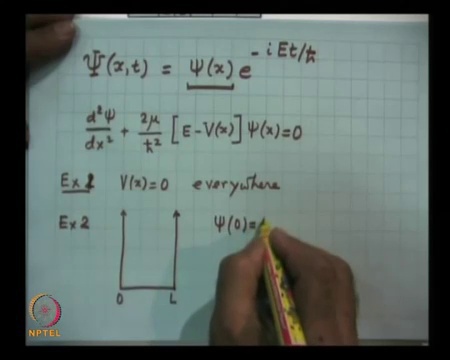 Ψ(x,t) = ψ(x) e^{-iEt/ħ}
d²ψ/dx² + 2μ/ħ² [E-V(x)] ψ(x)=0
Ex 1 V(x)=0 everywhere
Ex 2 ψ(0)=
0 L
NPTEL